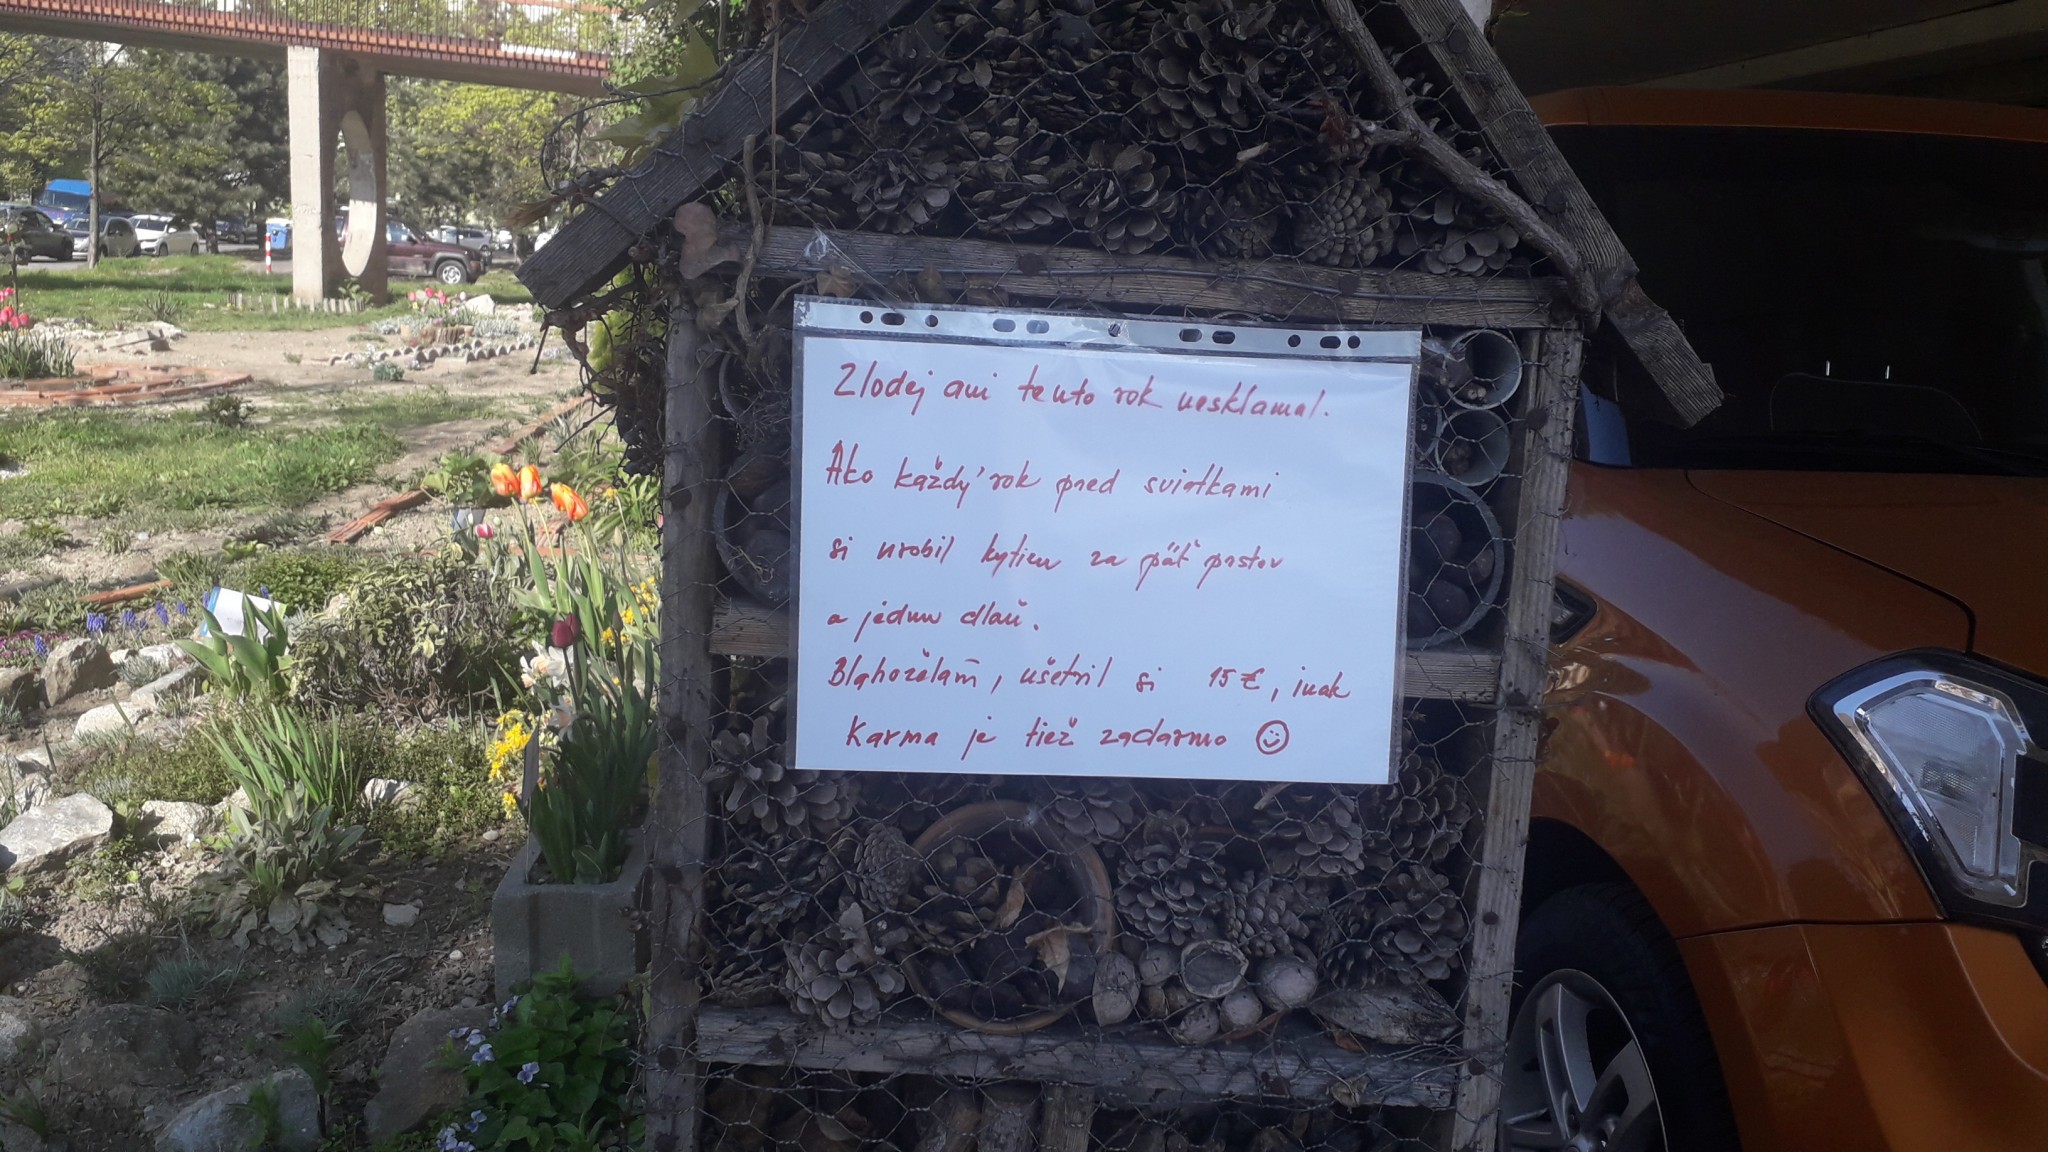 Zlodej ani tento rok nesklamal.
Ako každý rok pred sviatkami
si urobil kyticu za päť prstov
a jednu dlaň.
Blahoželám, ušetril si 15€, inak
Karma je tiež zadarmo ☺